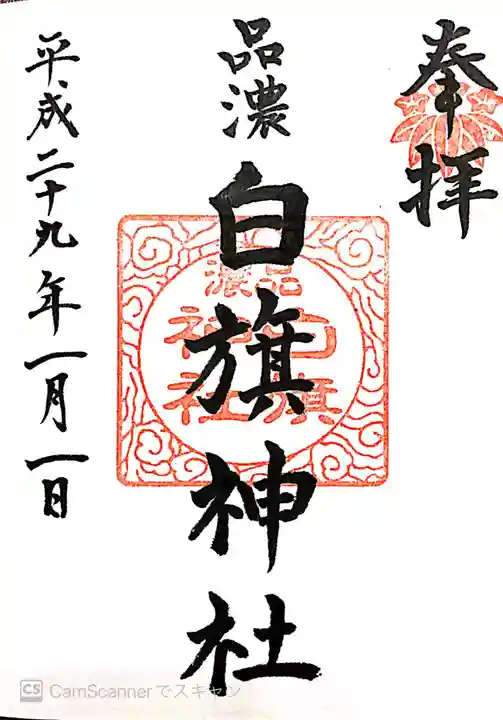 奉拝
品濃
白旗神社
品濃
白旗
神社
平成二十九年一月一日
CS CamScannerでスキャン